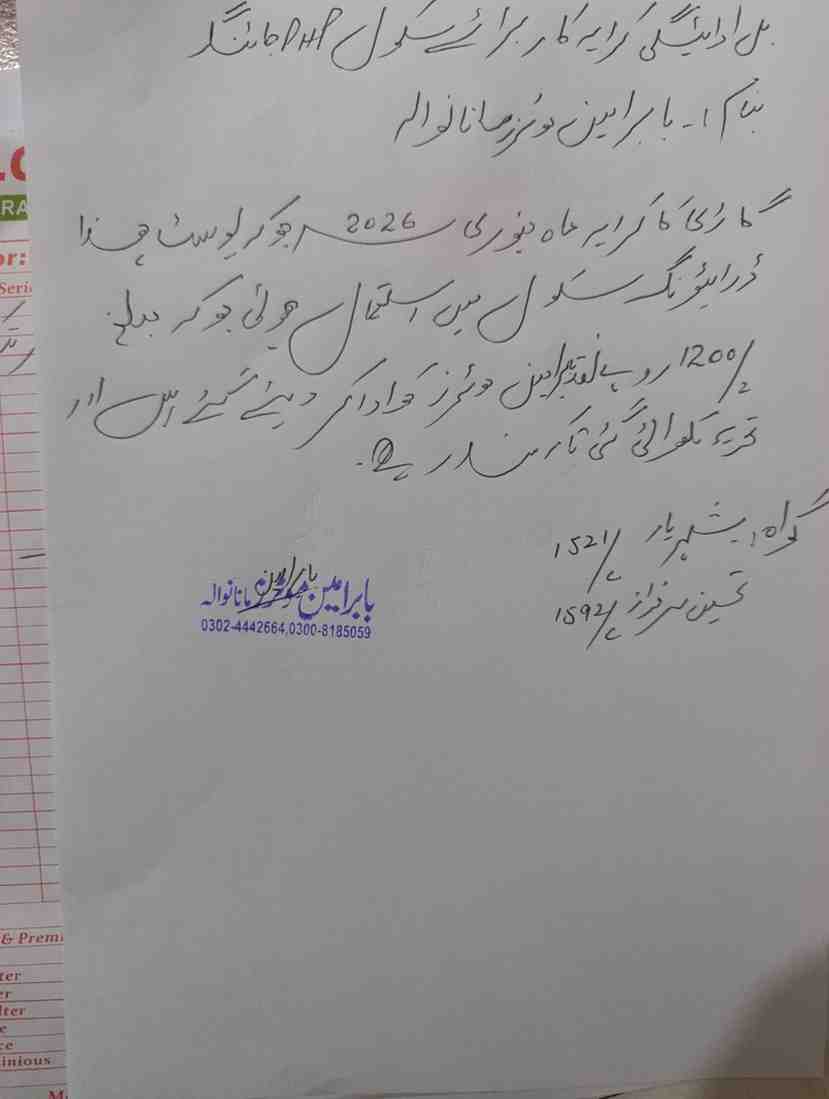 بل ادائیگی کرایہ کار برائے سکول PHP
بنام 1۔ بابر امین موٹرز مانانوالہ
گاڑی کا کرایہ ماہ جنوری 2026 جو کہ پوسٹ ھذا
ڈرائیونگ سکول میں استعمال ہوئی جو کہ مبلغ
1200/ روپے نقد بابر امین موٹرز کو ادا کر دیئے گئے
تحریر لکھوالی گئی تاکہ سند رہے۔
گواہ، شہریار 1521/c
تحسین سرفراز 1592/c
بابر امین
بابر امین موٹرز مانانوالہ
0302-4442664,0300-8185059
RA
or:
Seri
& Premi
ter
er
lter
e
ce
inious
M